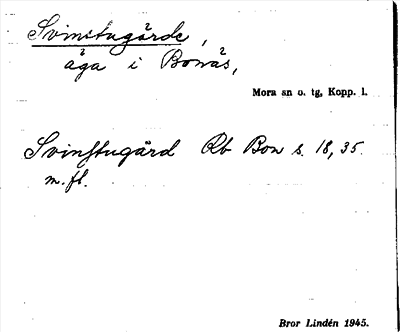 Svinstugårde,
åga i Bonäs,
Mora sn o. tg, Kopp. l.
Svinstugård Rb Bon s. 18, 35.
m. fl.
Bror Lindén 1945.